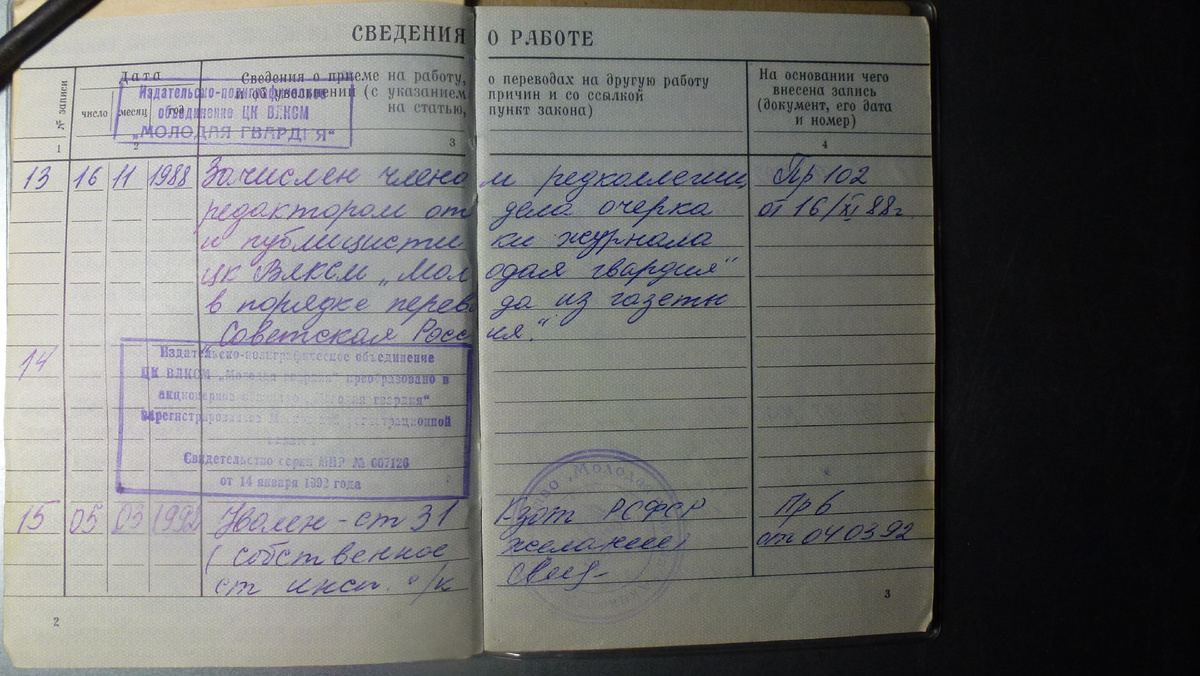 СВЕДЕНИЯ О РАБОТЕ
№ записи
Дата
число
месяц
год
Сведения о приеме на работу, о переводах на другую работу
и об увольнении (с указанием причин и со ссылкой
на статью, пункт закона)
На основании чего
внесена запись
(документ, его дата
и номер)
1 2 3 4
Издательско-полиграфическое
объединение ЦК ВЛКСМ
„МОЛОДАЯ ГВАРДИЯ“
13 16 11 1988 Зачислен членом редколлегии, Пр 102
редактором отдела очерка от 16/XI 88г.
и публицистики журнала
ЦК ВЛКСМ „Молодая гвардия“
в порядке перевода из газеты
„Советская Россия.“
14
Издательско-полиграфическое объединение
ЦК ВЛКСМ „Молодая гвардия“ преобразовано в
акционерное общество „Молодая гвардия“
зарегистрировано регистрационной
Свидетельство серии МПР № 007126
от 14 января 1992 года
15 05 03 1992 Уволен - ст 31 Кзот РСФСР Пр 6
(собственное желание) от 040392
ст инсп. о/к
Молодая
2
3